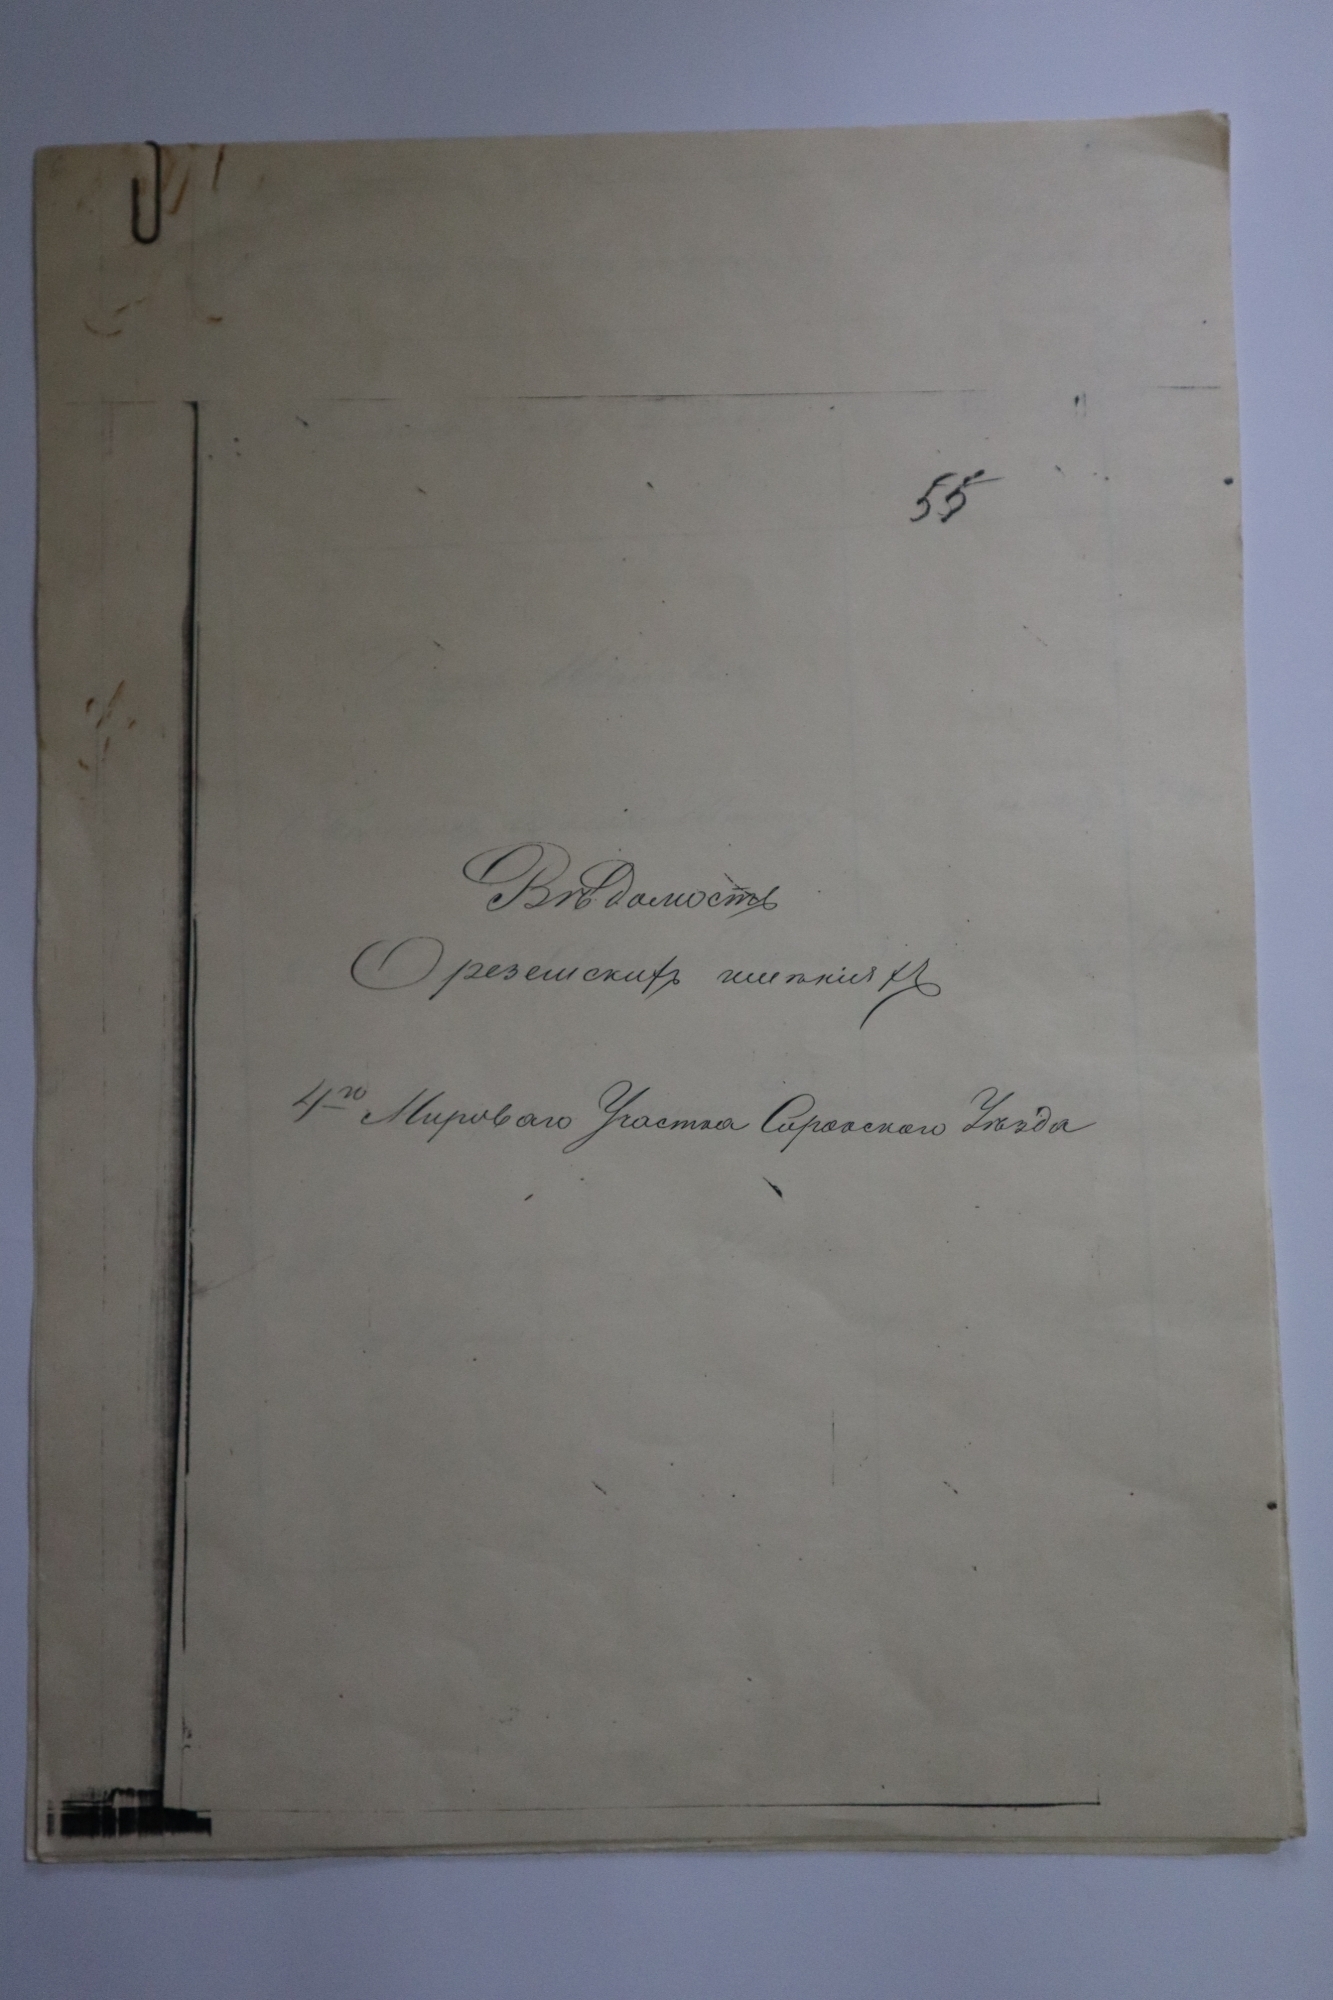 55
Вѣдомость
О резешскихъ имѣніяхъ
4го Мироваго Участка Сорокскаго Уѣзда